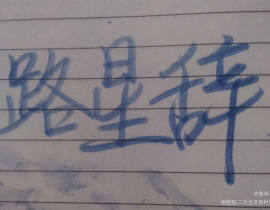 路星辞